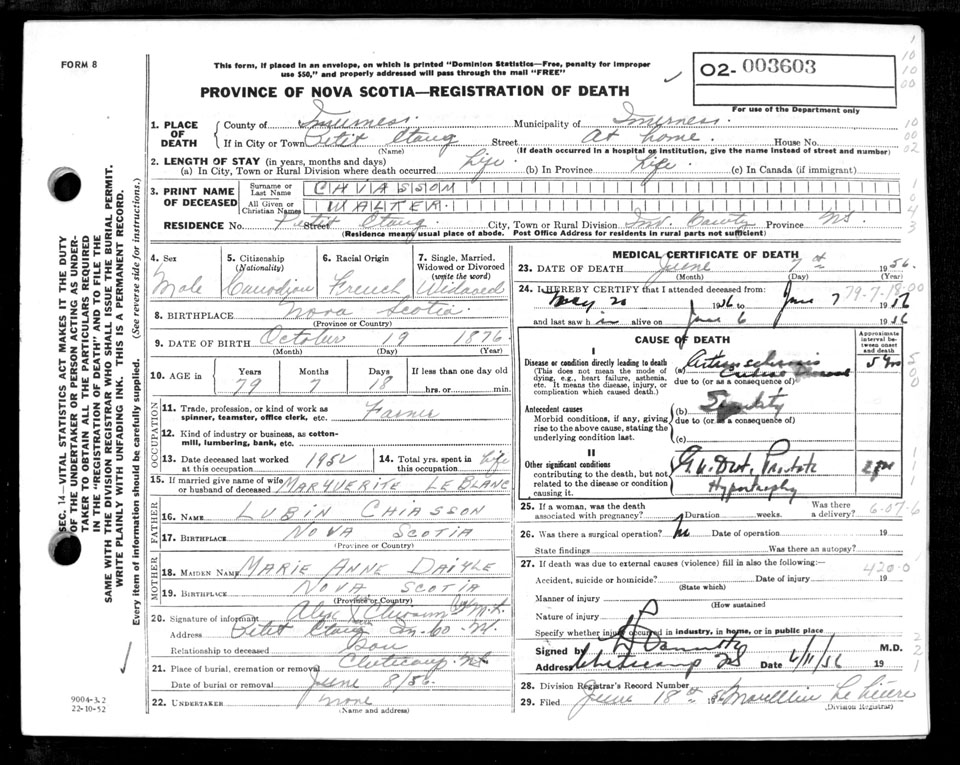 FORM 8
This form, if placed in an envelope, on which is printed "Dominion Statistics—Free, penalty for improper
use $50," and properly addressed will pass through the mail "FREE"
02- 003603
PROVINCE OF NOVA SCOTIA—REGISTRATION OF DEATH
For use of the Department only
1. PLACE OF DEATH County of Inverness Municipality of Inverness
If in City or Town Petit Etang Street At home House No.
(Name) (If death occurred in a hospital or institution, give the name instead of street and number)
2. LENGTH OF STAY (in years, months and days)
(a) In City, Town or Rural Division where death occurred Life (b) In Province Life (c) In Canada (if immigrant)
3. PRINT NAME OF DECEASED Surname or Last Name CHIASSON
All Given or Christian Names WALTER
RESIDENCE No. Petit Etang Street City, Town or Rural Division Inv. County Province NS
(Residence means usual place of abode. Post Office Address for residents in rural parts not sufficient)
4. Sex Male
5. Citizenship (Nationality) Canadian
6. Racial Origin French
7. Single, Married, Widowed or Divorced (write the word) Widowed
8. BIRTHPLACE Nova Scotia
(Province or Country)
9. DATE OF BIRTH October 19 1876
(Month) (Day) (Year)
10. AGE in Years 79 Months 7 Days 18 If less than one day old hrs. or min.
OCCUPATION
11. Trade, profession, or kind of work as spinner, teamster, office clerk, etc. Farmer
12. Kind of industry or business, as cotton-mill, lumbering, bank, etc.
13. Date deceased last worked at this occupation 1952
14. Total yrs. spent in this occupation Life
15. If married give name of wife or husband of deceased MARGUERITE LE BLANC
FATHER
16. NAME LUBIN CHIASSON
17. BIRTHPLACE NOVA SCOTIA
(Province or Country)
MOTHER
18. MAIDEN NAME MARIE ANNE DAIGLE
19. BIRTHPLACE NOVA SCOTIA
(Province or Country)
20. Signature of informant Alex Chiasson
Address Petit Etang In. Co. N.S.
Relationship to deceased Son
21. Place of burial, cremation or removal Cheticamp NS
Date of burial or removal June 8/56
22. UNDERTAKER none
(Name and address)
MEDICAL CERTIFICATE OF DEATH
23. DATE OF DEATH June 7th 1956
(Month) (Day) (Year)
24. I HEREBY CERTIFY that I attended deceased from:
May 20 1956 to June 7 1956
79-7-18-00
and last saw him alive on June 6 1956
CAUSE OF DEATH
Approximate interval between onset and death
I
Disease or condition directly leading to death
(This does not mean the mode of dying, e.g., heart failure, asthenia, etc. It means the disease, injury, or complication which caused death.)
(a) Arteriosclerosis Cardiac Disease 5 yrs
due to (or as a consequence of)
Antecedent causes
Morbid conditions, if any, giving rise to the above cause, stating the underlying condition last.
(b) Senility
due to (or as a consequence of)
(c)
II
Other significant conditions
contributing to the death, but not related to the disease or condition causing it.
Prostate Hypertrophy
25. If a woman, was the death associated with pregnancy? Duration weeks. Was there a delivery?
6-07-6
26. Was there a surgical operation? No Date of operation 19
State findings Was there an autopsy?
27. If death was due to external causes (violence) fill in also the following:
420-0
Accident, suicide or homicide? Date of injury 19
(State which)
Manner of injury
(How sustained)
Nature of injury
Specify whether injury occurred in industry, in home, or in public place
Signed by M.D.
Address Cheticamp NS Date 6/11/56 19
28. Division Registrar's Record Number
29. Filed June 18th 1956
(Division Registrar)
SEC. 14—VITAL STATISTICS ACT MAKES IT THE DUTY
OF THE UNDERTAKER OR PERSON ACTING AS UNDER-
TAKER TO OBTAIN ALL THE PARTICULARS REQUIRED
IN THE "REGISTRATION OF DEATH" AND TO FILE THE
SAME WITH THE DIVISION REGISTRAR WHO SHALL ISSUE THE BURIAL PERMIT.
WRITE PLAINLY WITH UNFADING INK. THIS IS A PERMANENT RECORD.
Every item of information should be carefully supplied. (See reverse side for instructions.)
9004-3.2
22-10-52